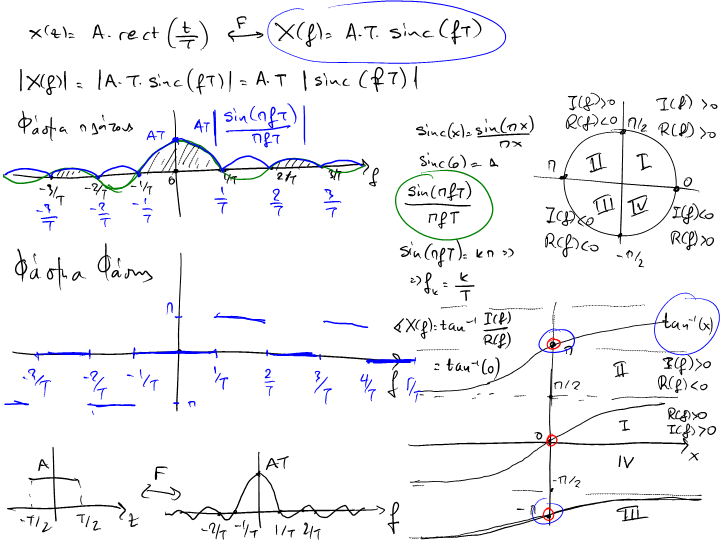 x(t) = A. rect (t/T) F X(f) = A.T. sinc (fT)
|X(f)| = |A.T. sinc(fT)| = A.T |sinc(fT)|
Φάσμα πλάτους
AT
AT |sin(πfT)/πfT|
-3/T -2/T -1/T 0 1/T 2/T 3/T f
-3/T -2/T -1/T 1/T 2/T 3/T
sinc(x) = sin(πx)/πx
sinc(0) = 1
sin(πfT)/πfT
sin(πfT) = kπ =>
=> f_k = k/T
I(f)>0 I(f) >0
R(f)<0 π/2 R(f) >0
π II I 0
III IV
I(f)<0 I(f)<0
R(f)<0 R(f)>0
-π/2
Φάσμα Φάσης
π
-3/T -2/T -1/T 1/T 2/T 3/T 4/T f 5/T
-π
∢X(f) = tan⁻¹ I(f)/R(f)
= tan⁻¹(0)
tan⁻¹(x)
π
II I(f)>0
R(f)<0
π/2
R(f)>0
I I(f)>0
0
IV x
-π/2
-π III
A F AT
-T/2 T/2 t -2/T -1/T 1/T 2/T f